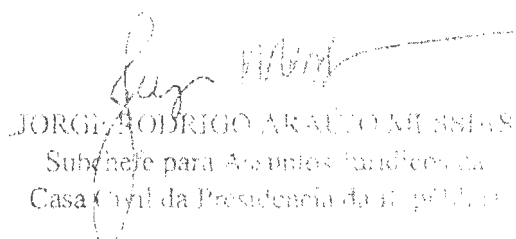 JORGE RODRIGO ARAÚJO MESSIAS
Subchefe para Assuntos Jurídicos da
Casa Civil da Presidência da República